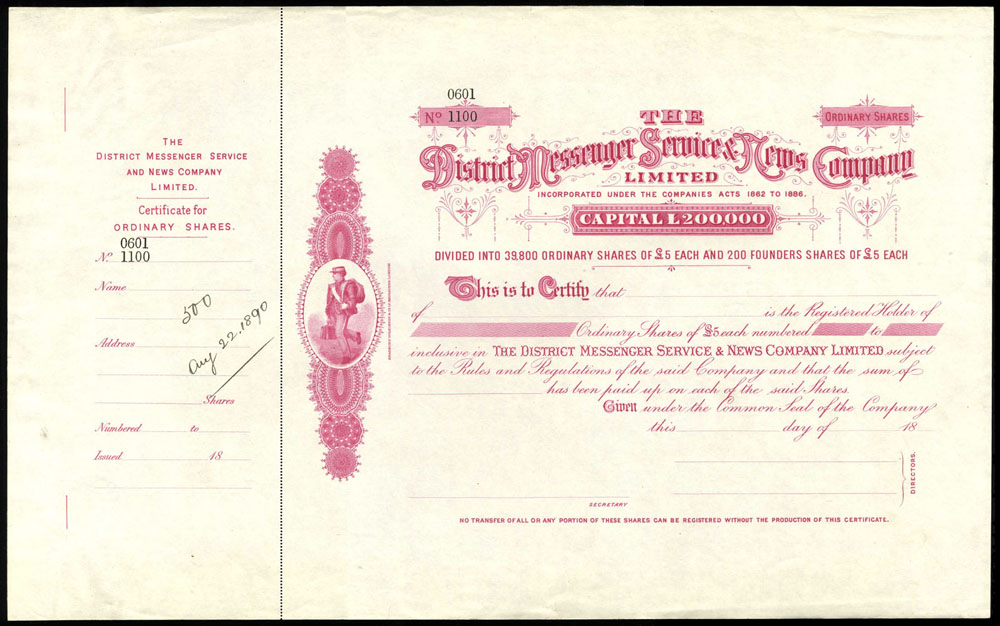 THE
DISTRICT MESSENGER SERVICE
AND NEWS COMPANY
LIMITED.
Certificate for
ORDINARY SHARES.
0601
No. 1100
Name
500
Aug 22, 1890
Address
Shares
Numbered to
Issued 18
0601
No 1100
ORDINARY SHARES
THE
District Messenger Service & News Company
LIMITED
INCORPORATED UNDER THE COMPANIES ACTS 1862 TO 1886.
CAPITAL £200000
DIVIDED INTO 39,800 ORDINARY SHARES OF £5 EACH AND 200 FOUNDERS SHARES OF £5 EACH
This is to Certify that
of is the Registered Holder of
Ordinary Shares of £5 each numbered to
inclusive in THE DISTRICT MESSENGER SERVICE & NEWS COMPANY LIMITED subject
to the Rules and Regulations of the said Company and that the sum of
has been paid up on each of the said Shares.
Given under the Common Seal of the Company
this day of 18
DIRECTORS.
SECRETARY
NO TRANSFER OF ALL OR ANY PORTION OF THESE SHARES CAN BE REGISTERED WITHOUT THE PRODUCTION OF THIS CERTIFICATE.